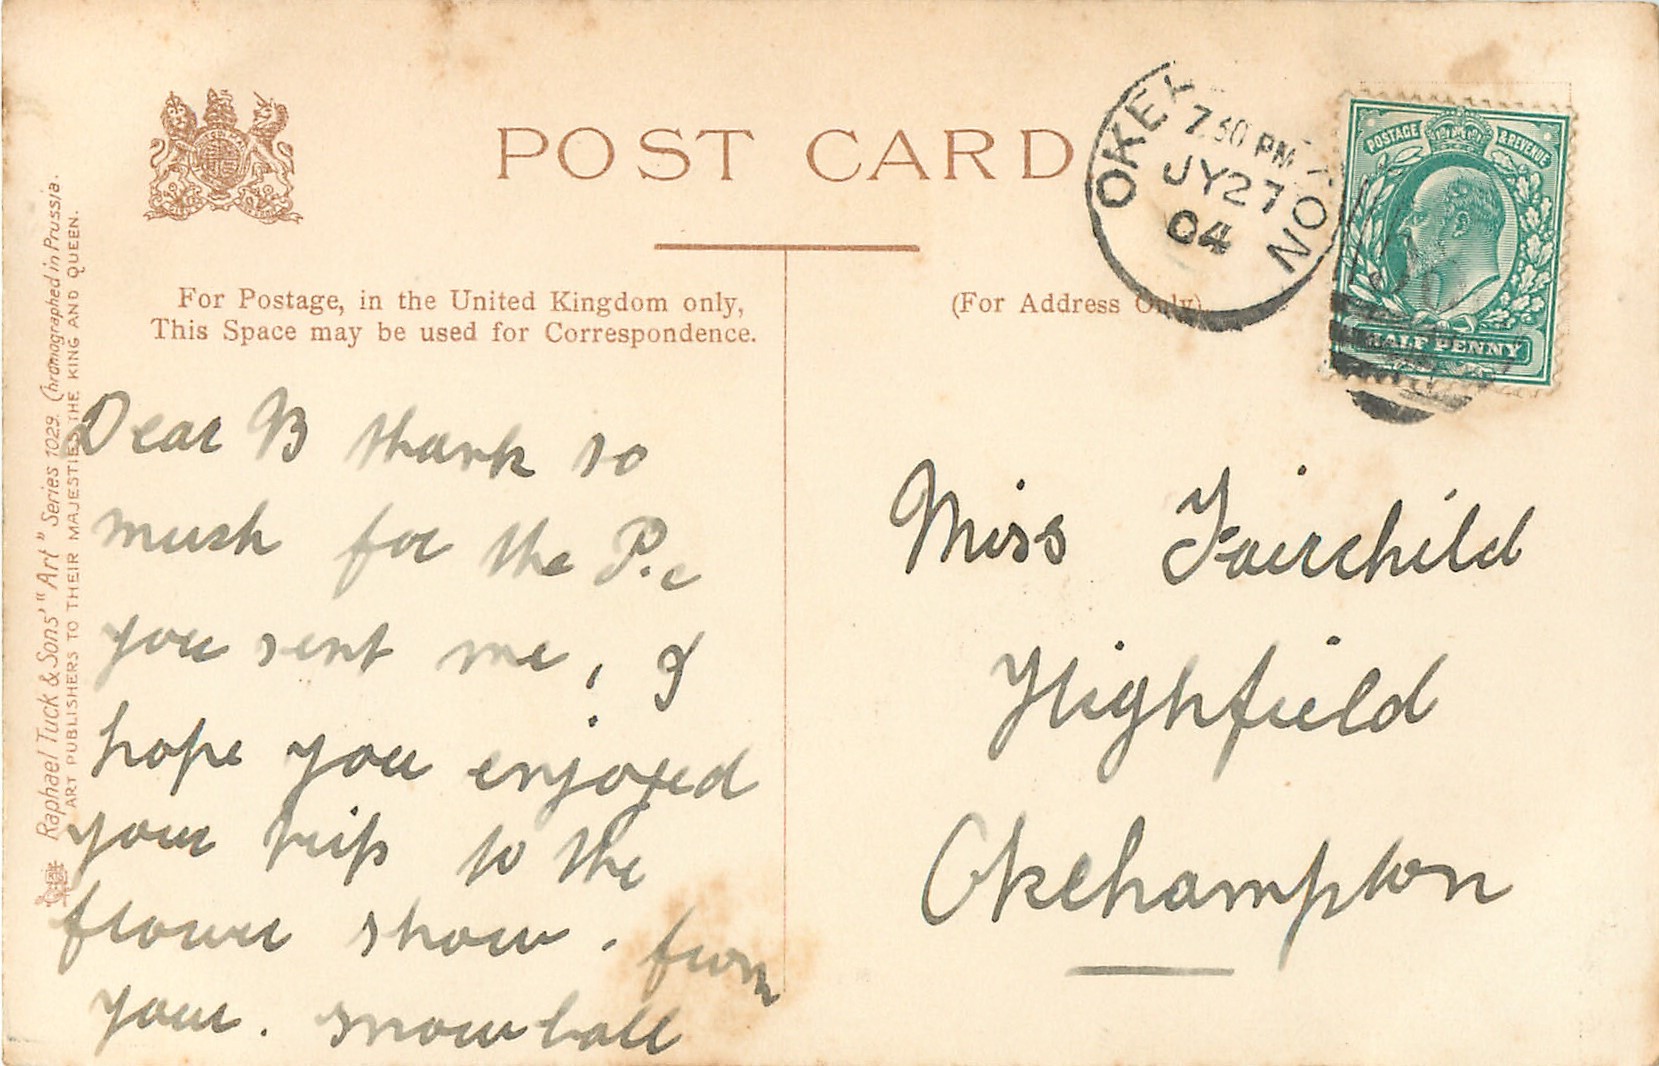 POST CARD
For Postage, in the United Kingdom only,
This Space may be used for Correspondence.
(For Address Only)
OKEH TON
7.30 PM
JY 27
04
POSTAGE & REVENUE
HALF PENNY
Raphael Tuck & Sons' "Art" Series 1029. Chromographed in Prussia.
ART PUBLISHERS TO THEIR MAJESTIES THE KING AND QUEEN.
Dear B thank so
much for the P.c
you sent me, I
hope you enjoyed
your trip to the
flower show. from
your. snowball
Miss Fairchild
Highfield
Okehampton